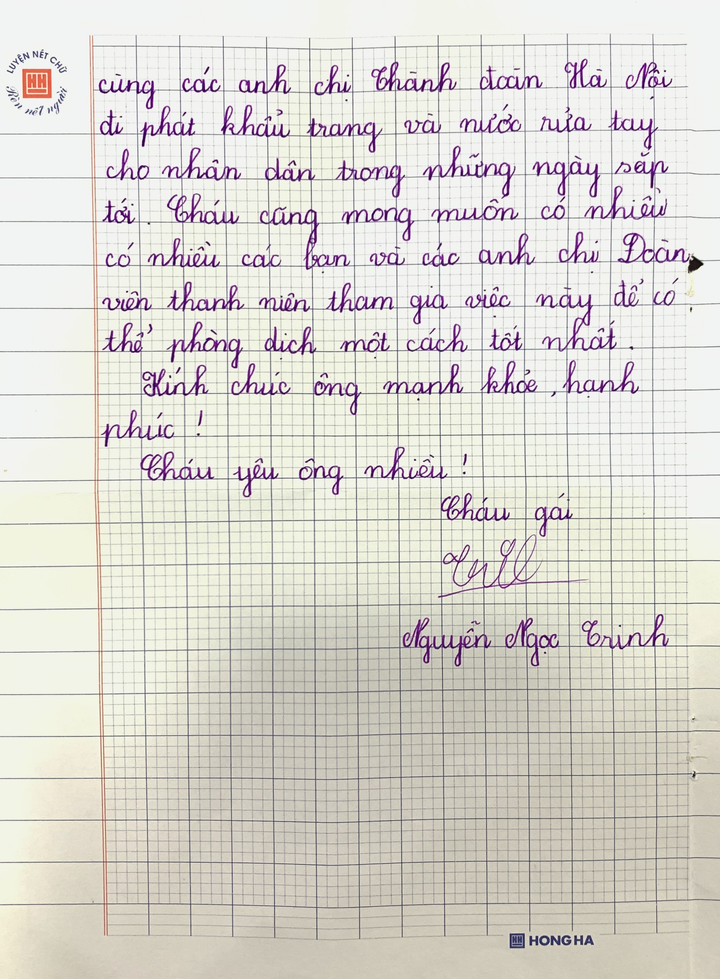 LUYỆN NÉT CHỮ
HH
Rèn nết người
cùng các anh chị Thành đoàn Hà Nội
đi phát khẩu trang và nước rửa tay
cho nhân dân trong những ngày sắp
tới. Cháu cũng mong muốn có nhiều
có nhiều các bạn và các anh chị Đoàn
viên thanh niên tham gia việc này để có
thể phòng dịch một cách tốt nhất.
Kính chúc ông mạnh khỏe, hạnh
phúc!
Cháu yêu ông nhiều!
Cháu gái
Nguyễn Ngọc Trinh
HH HONG HA